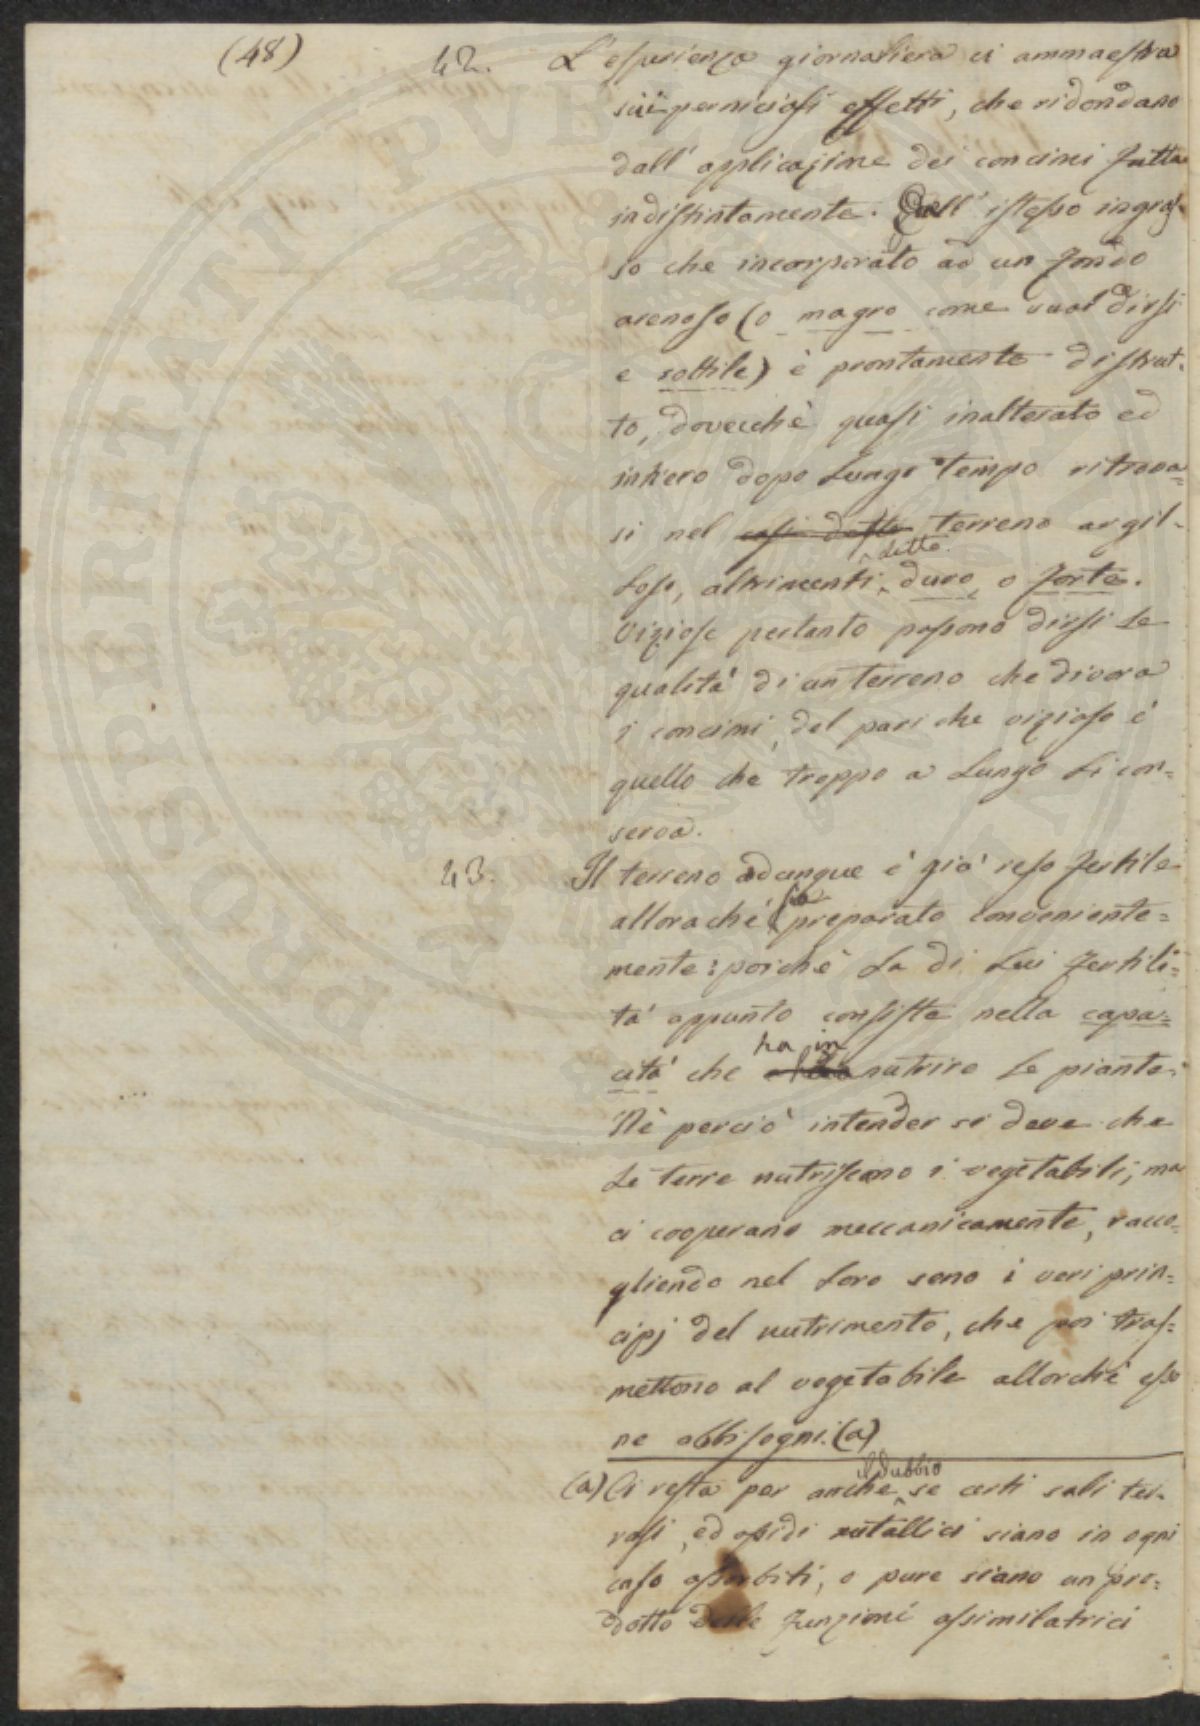 (48)
42. L'esperienza giornaliera ci ammaestra
sui perniciosi effetti, che ridondano
dall' applicazione dei concimi fatta
indistintamente. Quell' istesso ingras-
so che incorporato ad un fondo
arenoso (o magro come vuol dirsi
e sottile) è prontamente distrut-
to, dovecchè quasi inalterato ed
intiero dopo lungo tempo ritrova=
si nel così detto terreno argil-
loso, altrimenti detto duro, o forte.
Viziose pertanto possono dirsi le
qualità di un terreno che divora
i concimi, del pari che vizioso è
quello che troppo a lungo li con=
serva.
43. Il terreno adunque è già reso fertile
allorachè sia preparato conveniente=
mente: poichè la di lui fertili=
tà appunto consiste nella capa=
cità che ha in nutrire le piante.
Nè perciò intender si deve che
le terre nutriscano i vegetabili, ma
ci cooperano meccanicamente, racco=
gliendo nel loro seno i veri prin=
cipj del nutrimento, che poi tras=
mettono al vegetabile allorchè esso
ne abbisogni. (a)
(a) Ci resta per anche il dubbio se certi sali ter-
rosi, ed ossidi metallici siano in ogni
caso assorbiti, o pure siano un pro=
dotto delle funzioni assimilatrici
PROSPERITATI PVBLICAE